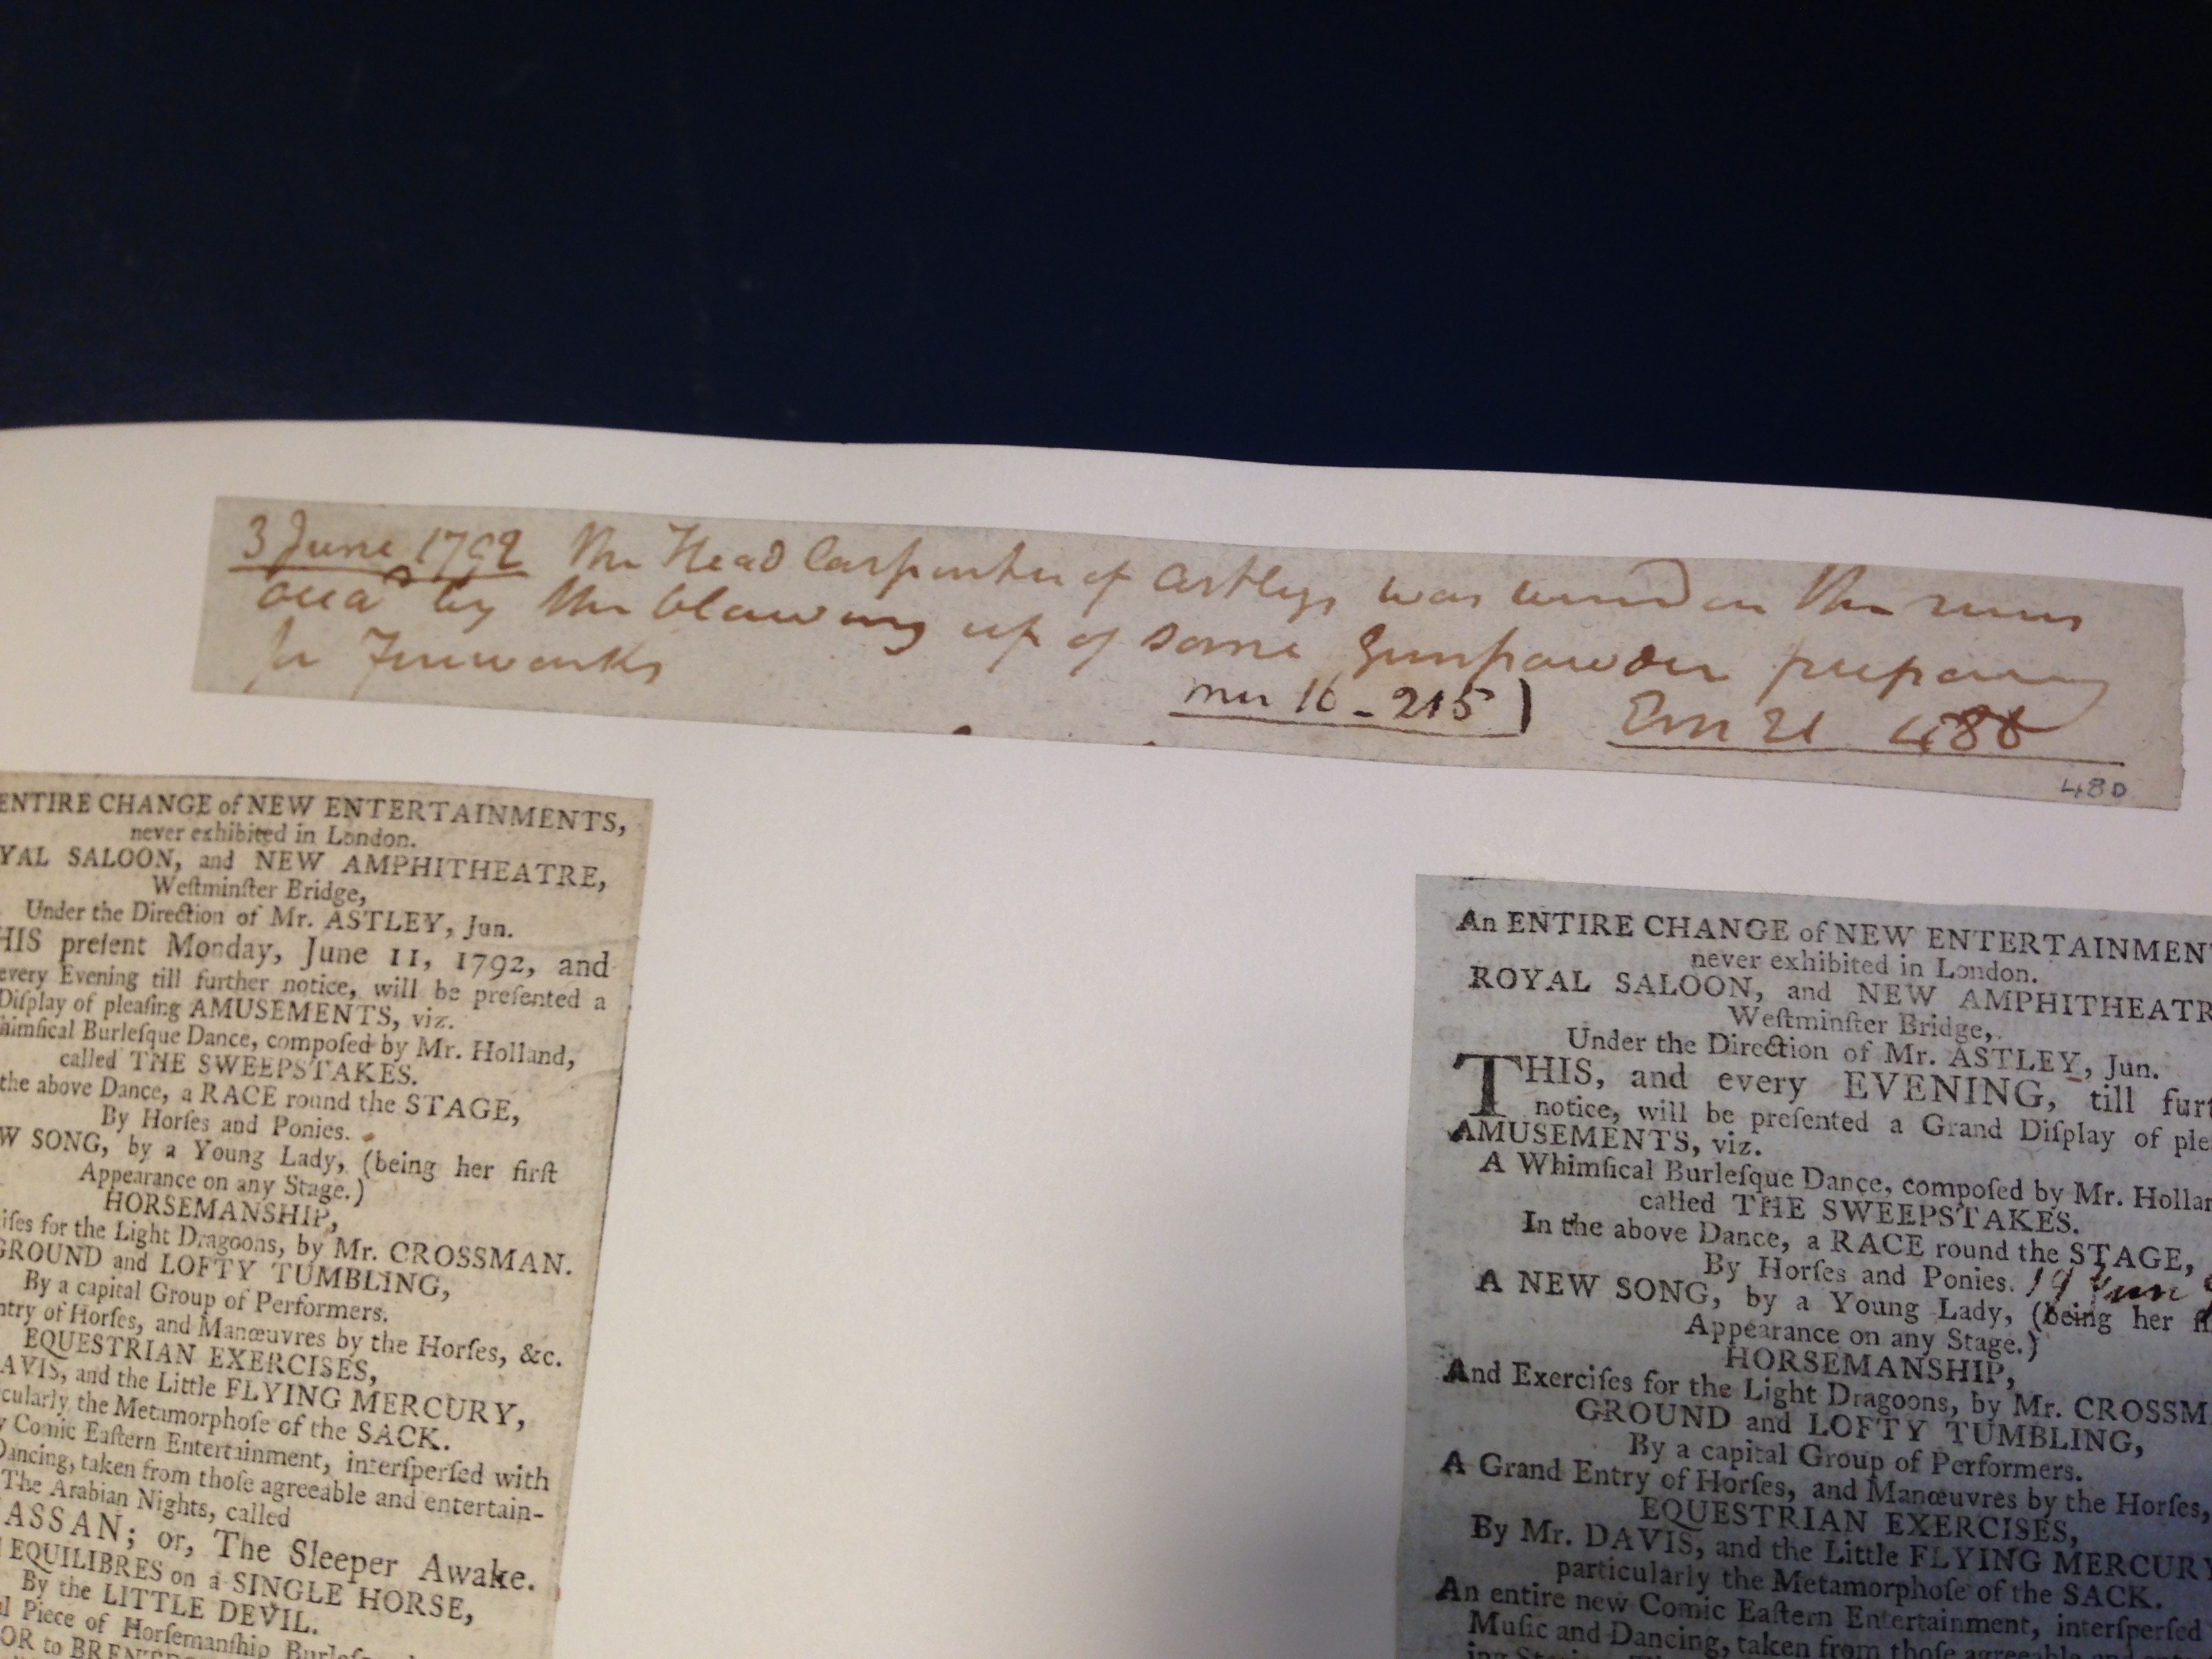 3 June 1792 The Head Carpenter of Astleys was buried in the ruins
occad by the blowing up of some Gunpowder preparing
for Fireworks
16 - 215) 21 488
480
ENTIRE CHANGE of NEW ENTERTAINMENTS,
never exhibited in London.
YAL SALOON, and NEW AMPHITHEATRE,
Weſtminſter Bridge,
Under the Direction of Mr. ASTLEY, Jun.
HIS preſent Monday, June 11, 1792, and
every Evening till further notice, will be preſented a
Diſplay of pleaſing AMUSEMENTS, viz.
himſical Burleſque Dance, compoſed by Mr. Holland,
called THE SWEEPSTAKES.
the above Dance, a RACE round the STAGE,
By Horſes and Ponies.
W SONG, by a Young Lady, (being her firſt
Appearance on any Stage.)
HORSEMANSHIP,
iſes for the Light Dragoons, by Mr. CROSSMAN.
GROUND and LOFTY TUMBLING,
By a capital Group of Performers.
ntry of Horſes, and Manœuvres by the Horſes, &c.
EQUESTRIAN EXERCISES,
AVIS, and the Little FLYING MERCURY,
cularly the Metamorphoſe of the SACK.
w Comic Eaſtern Entertainment, interſperſed with
Dancing, taken from thoſe agreeable and entertain-
The Arabian Nights, called
ASSAN; or, The Sleeper Awake.
EQUILIBRES on a SINGLE HORSE,
By the LITTLE DEVIL.
l Piece of Horſemanſhip
OR to
An ENTIRE CHANGE of NEW ENTERTAINMEN
never exhibited in London.
ROYAL SALOON, and NEW AMPHITHEATR
Weſtminſter Bridge,
Under the Direction of Mr. ASTLEY, Jun.
THIS, and every EVENING, till furt
notice, will be preſented a Grand Diſplay of ple
AMUSEMENTS, viz.
A Whimſical Burleſque Dance, compoſed by Mr. Hollan
called THE SWEEPSTAKES.
In the above Dance, a RACE round the STAGE,
By Horſes and Ponies. 19 June
A NEW SONG, by a Young Lady, (being her fi
Appearance on any Stage.)
HORSEMANSHIP,
And Exerciſes for the Light Dragoons, by Mr. CROSSM
GROUND and LOFTY TUMBLING,
By a capital Group of Performers.
A Grand Entry of Horſes, and Manœuvres by the Horſes,
EQUESTRIAN EXERCISES,
By Mr. DAVIS, and the Little FLYING MERCURY
particularly the Metamorphoſe of the SACK.
An entire new Comic Eaſtern Entertainment, interſperſed
Muſic and Dancing, taken from thoſe agreeable and